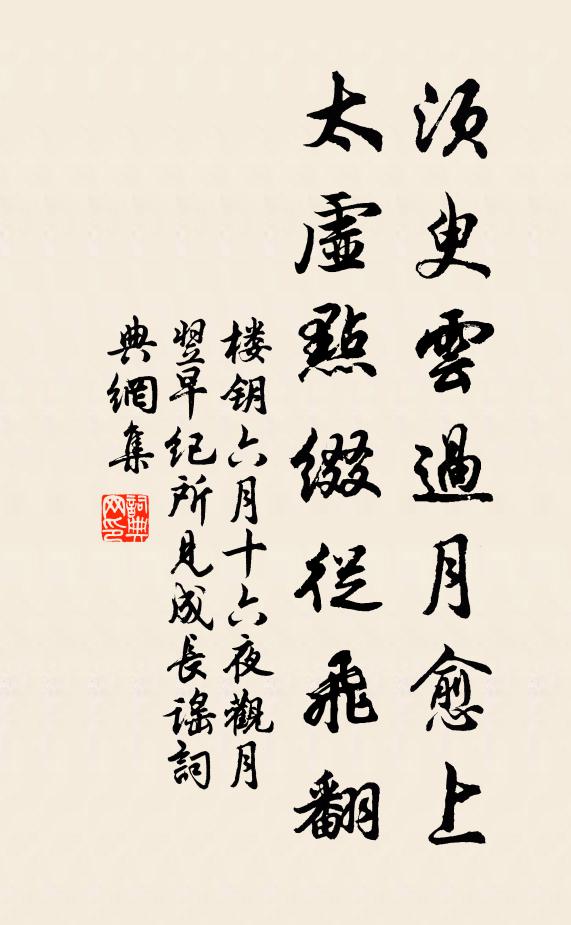 須臾雲過月愈上
太虛點綴從飛翻
楼钥六月十六夜觀月
翌早纪所見成長謠詞
典網集
詞典網印